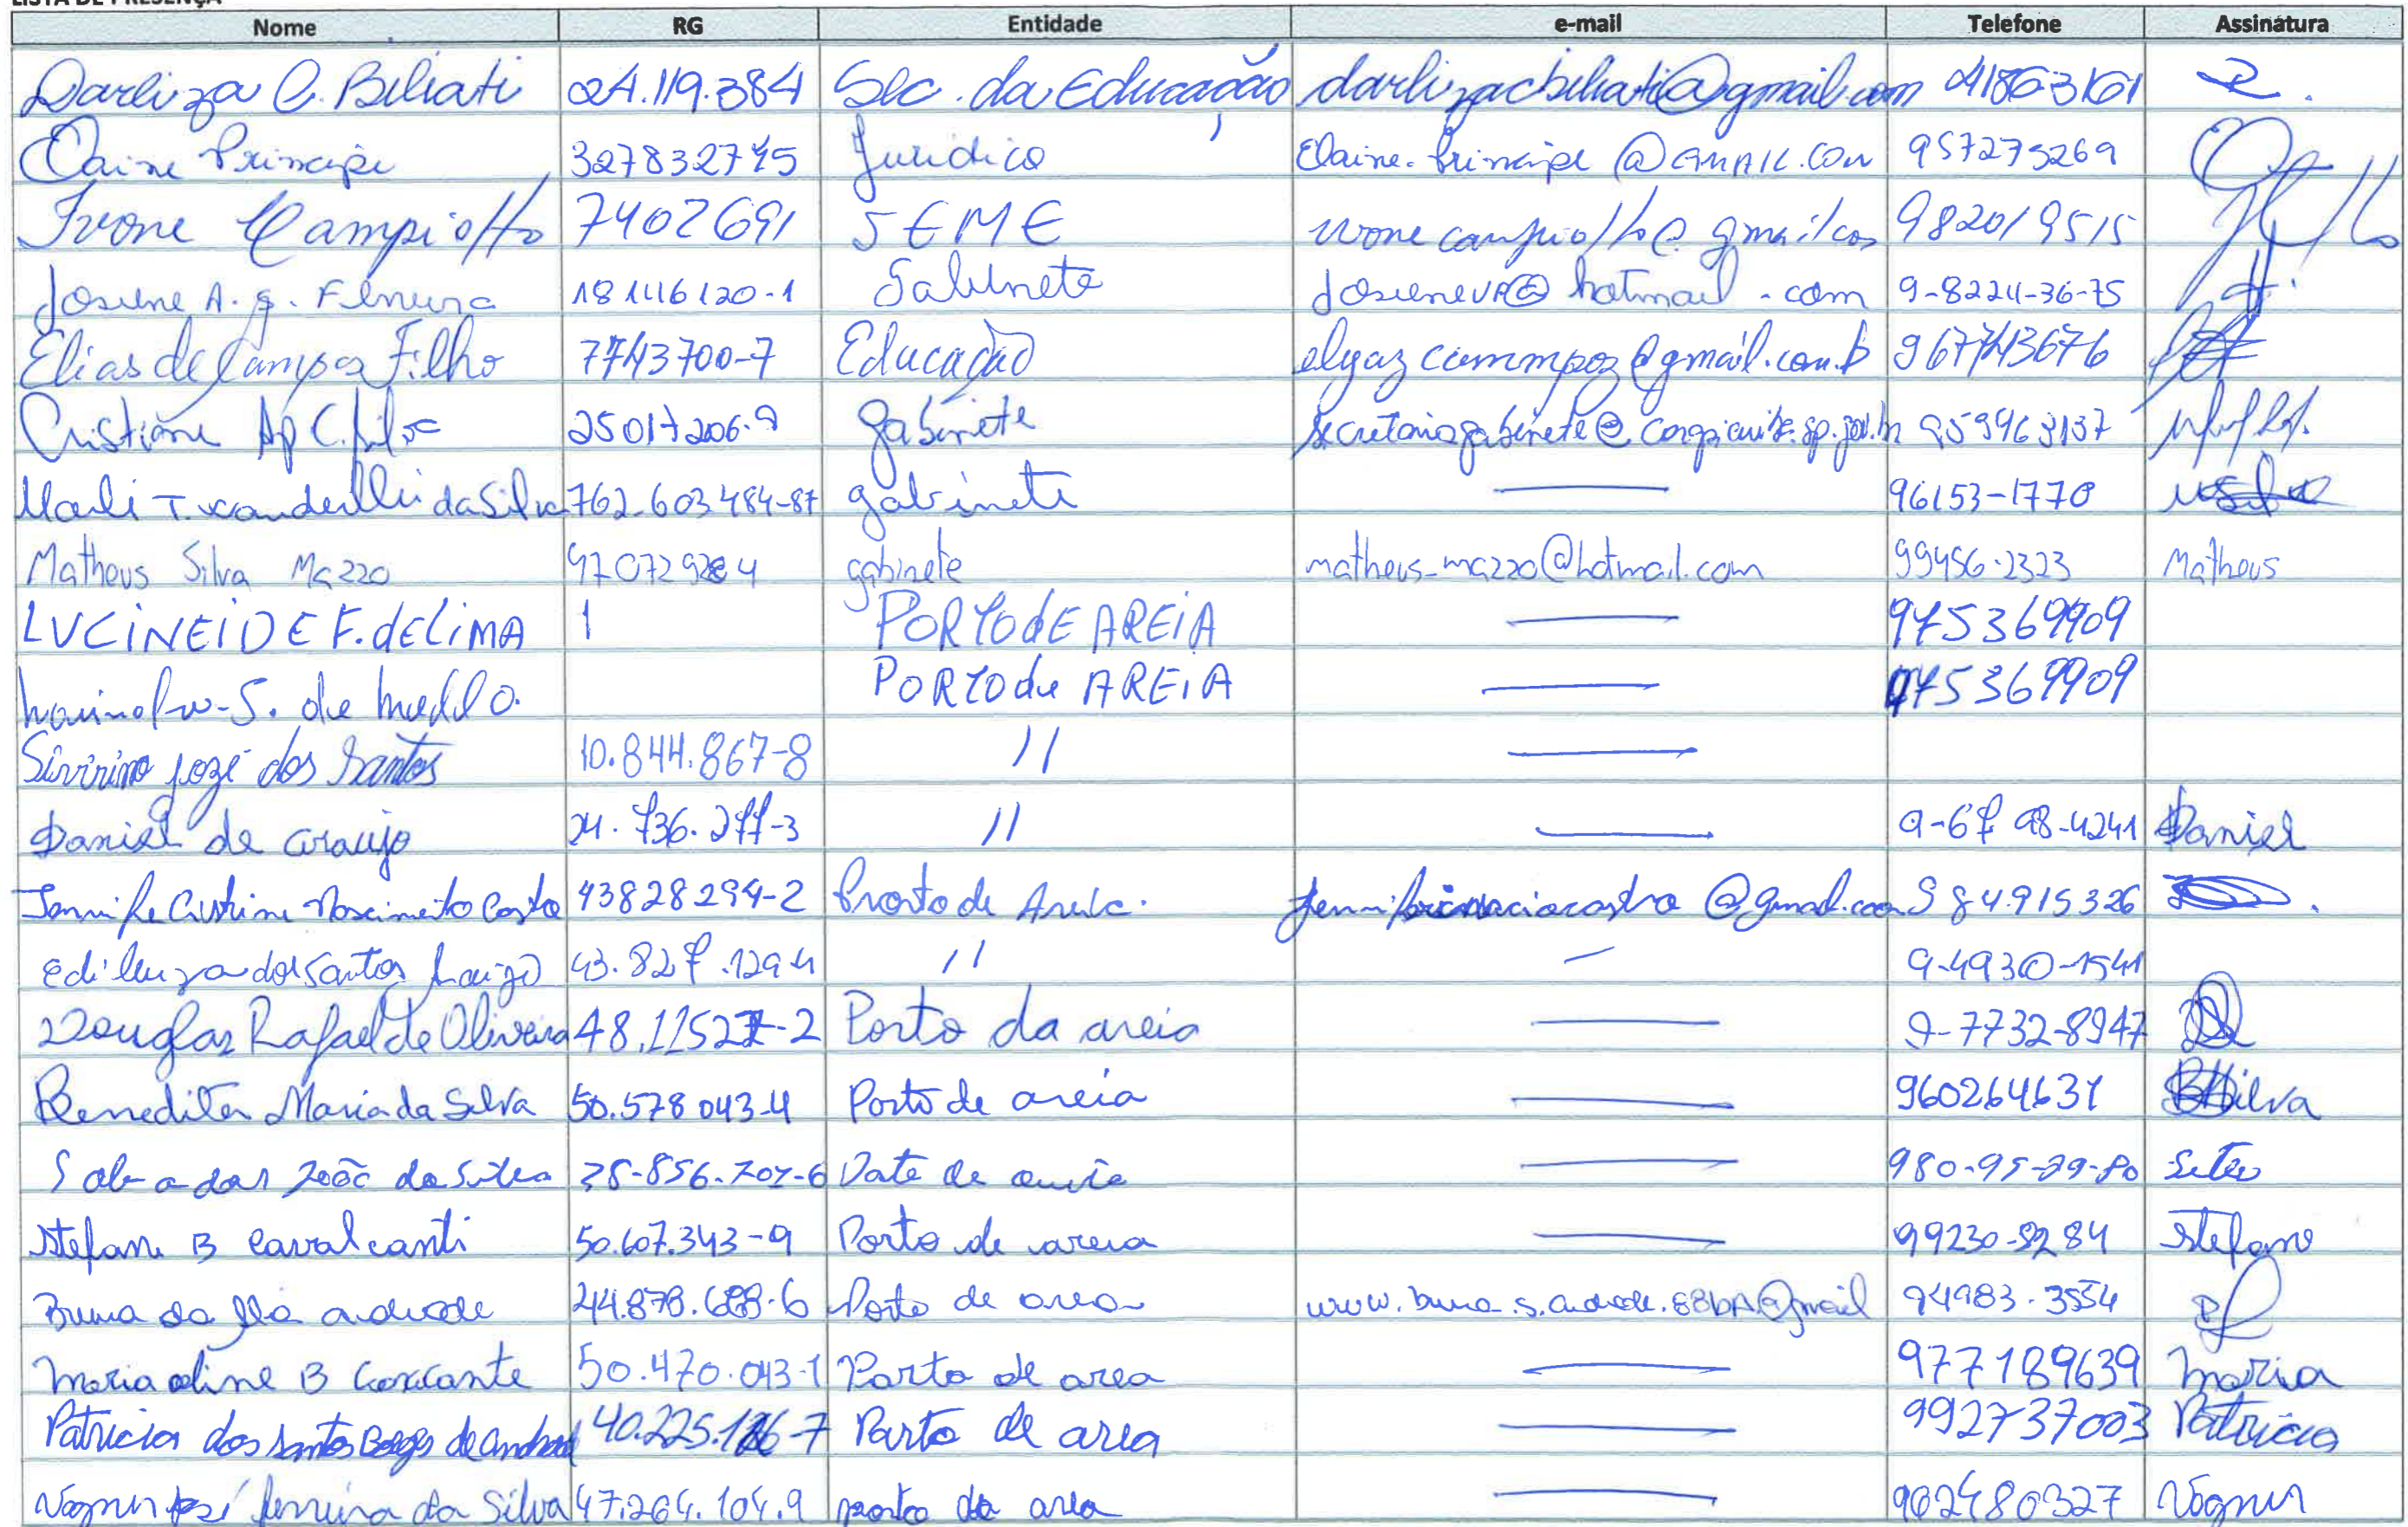 LISTA DE PRESENÇA
Nome RG Entidade e-mail Telefone Assinatura
Darliza C. Biliati 24.119.384 Sec. da Educação darlizacbiliati@gmail.com 41863161
Elaine Principe Juridico Elaine.principe @GMAIL.COM 957275269
Ivone Campiotto 7402691 SEME ivone campiotto@gmail.com 982019515
Josiene A. G. Ferreira 18146120-1 Gabinete josieneva@hotmail.com 9-8224-36-75
Elias de Campos Filho 7743700-7 Educação elyaz cammpoz@gmail.com.b 967743676
Cristiane Ap C. Silva 25017206-9 gabinete secretariagabinete@carapicuiba.sp.gov.br 959963137
Marli T. Wanderlei da Silva 762.603.484-87 gabinete 96153-1770
Matheus Silva Mazzo gabinete matheus_mazzo@hotmail.com 99456-2323 Matheus
LUCINEIDE F. dE LIMA PORTO dE AREIA 975369909
S. de PORTO de AREIA 975369909
Sivirino jozé dos Santos 10.844.867-8 //
Daniel de araujo 24.736.277-3 // 9-67 98-4241 Daniel
Cristine Nascimento 43828294-2 Porto de @gmail.com 984.915326
Edileuza dos Santos 43.827.129-4 // 9-4930-1541
Douglas Rafael de Oliveira Porto da areia 9-7732-8947
Benedita Maria da Silva 50.578 043-4 Porto de areia 960264631 BMSilva
João da Silva
Stefani B Cavalcanti 50.607.343-9 Porto de areia Stefane
Bruna da andrade Porto de area 94983-3554
Maria aline B 50.470.043-1 Porto de area 977189639 Maria
Patricia dos Santos Borges de Andrad Porto de area 992737003 Patricia
Vagner José ferreira da Silva 47.264.104.9 porto de area 962480327 Vagner